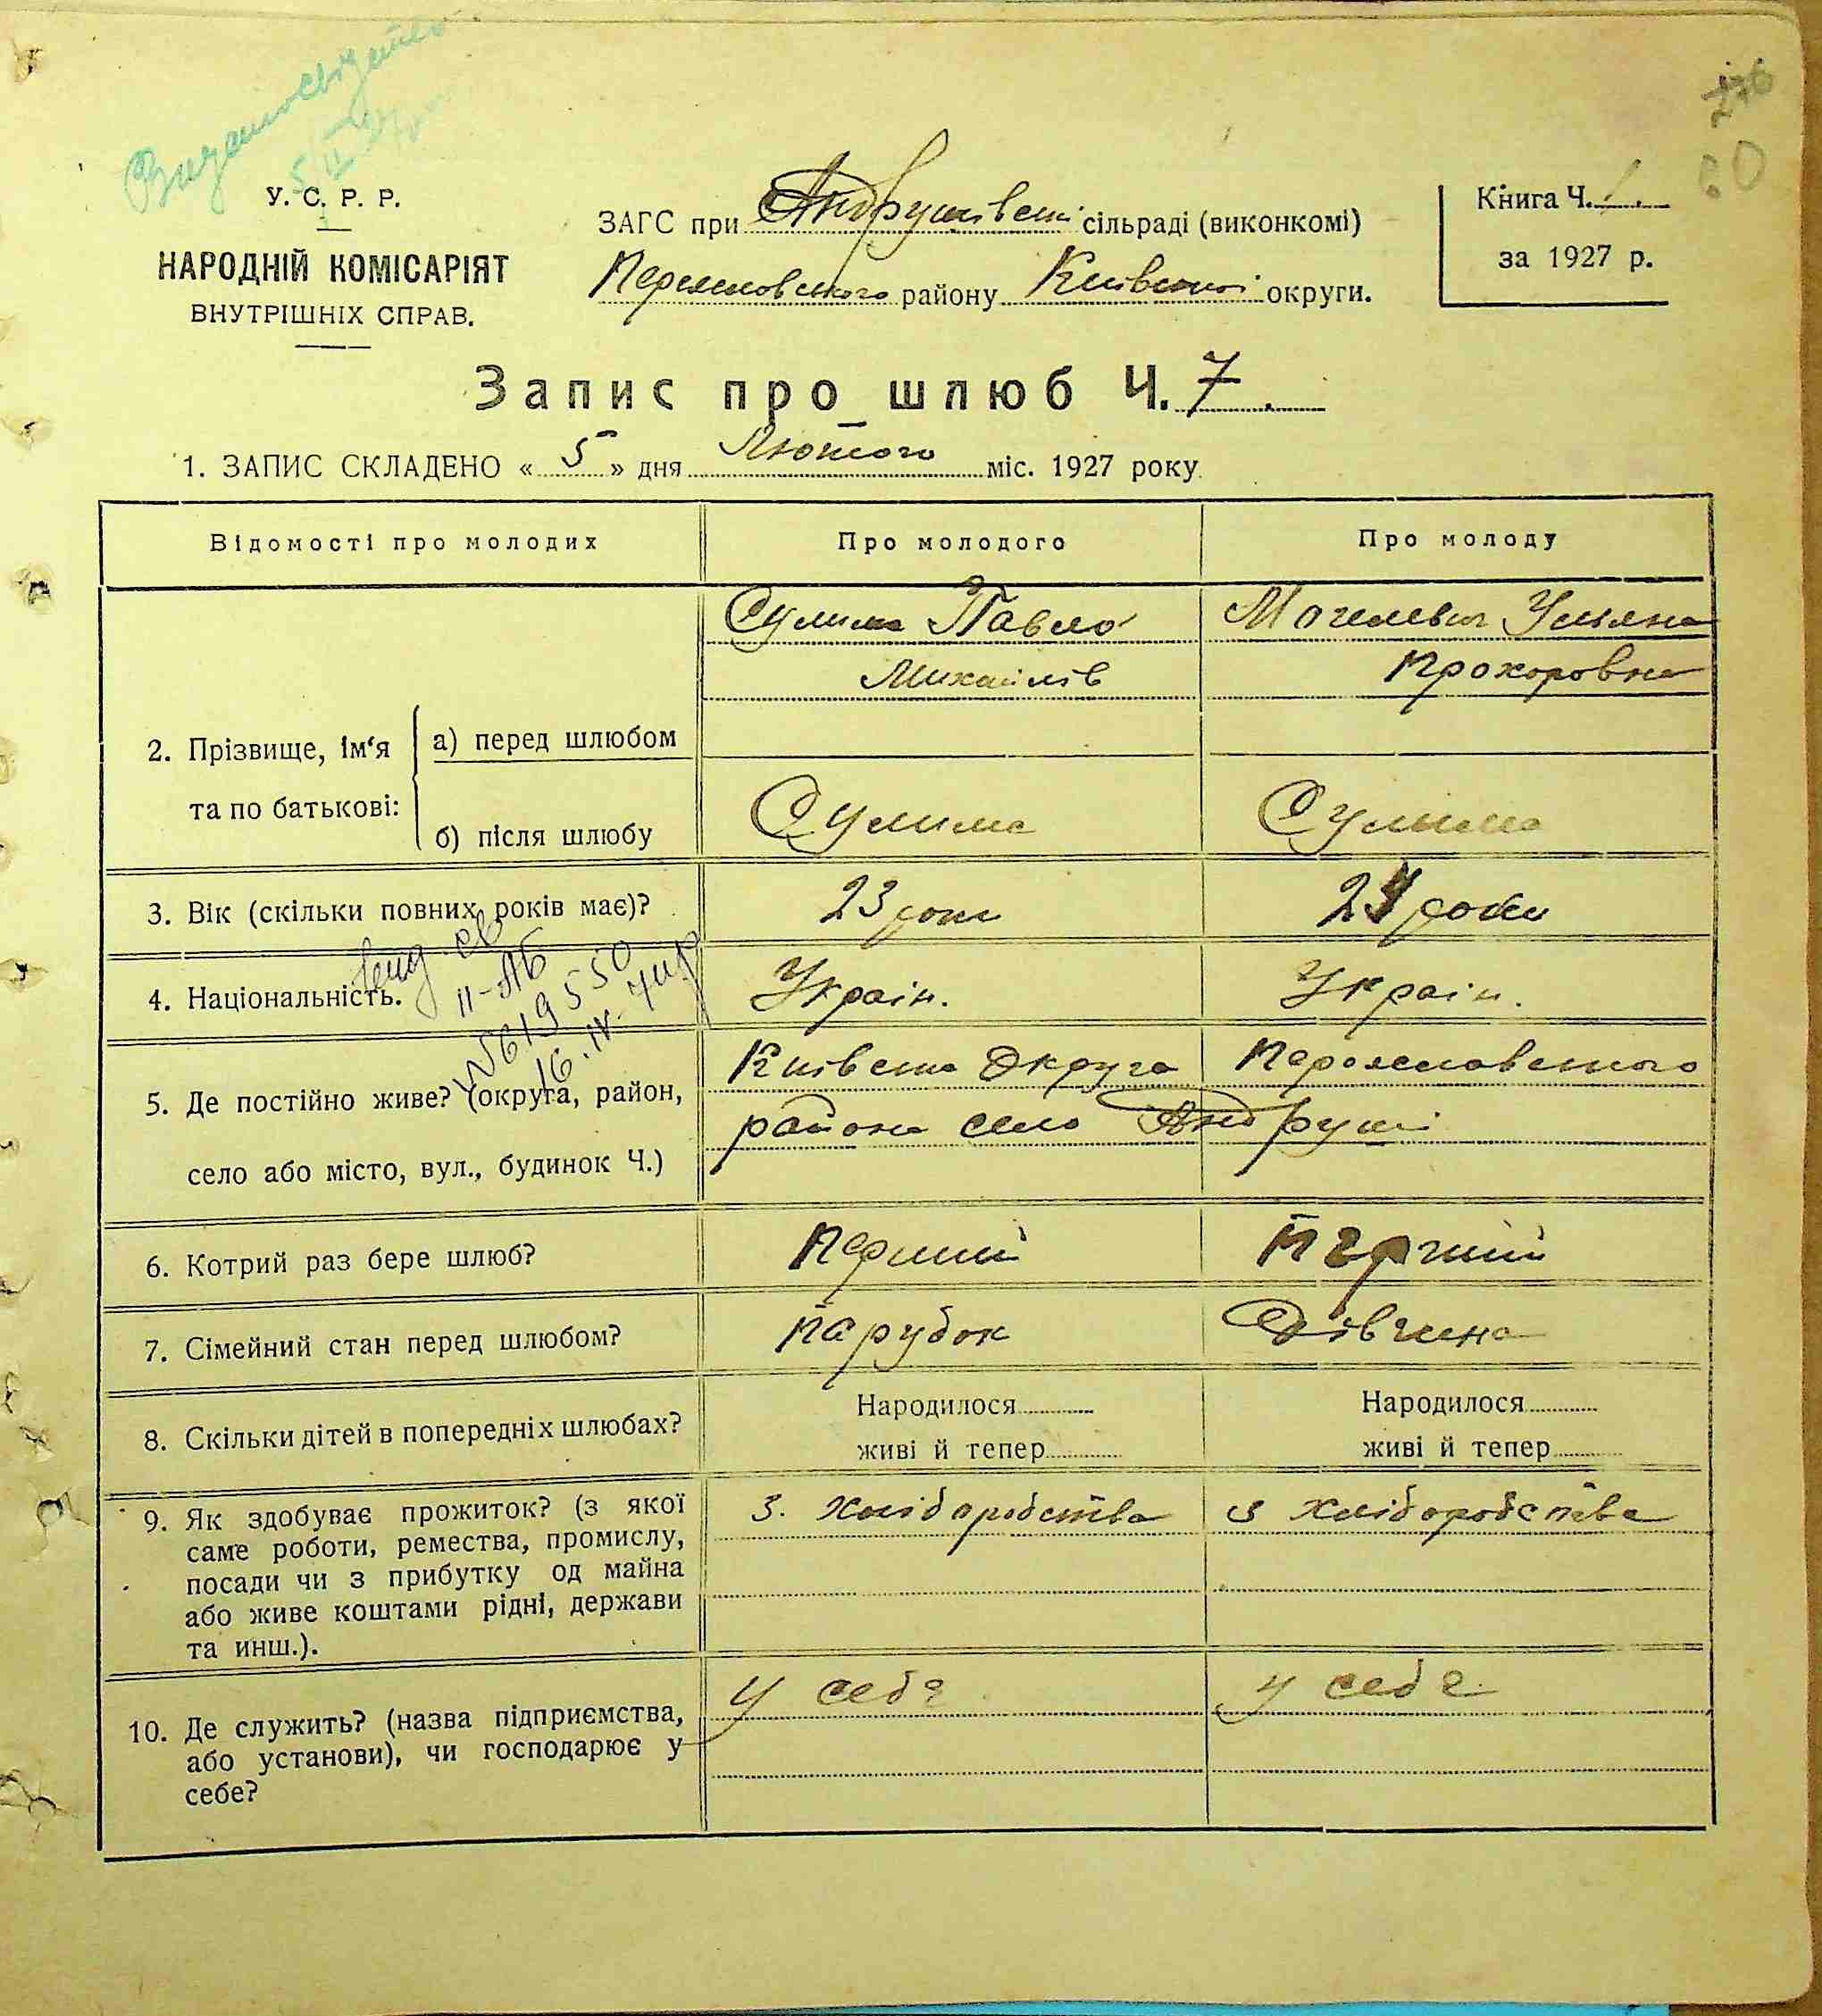 276
60
У. С. Р. Р.
НАРОДНІЙ КОМІСАРІЯТ
ВНУТРІШНІХ СПРАВ.
ЗАГС при Андрушівські сільраді (виконкомі)
Переяславського району Київської округи.
Книга Ч. 1.
за 1927 р.
Запис про шлюб Ч. 7
1. ЗАПИС СКЛАДЕНО « 5 » дня Лютого міс. 1927 року
Відомості про молодих
Про молодого
Про молоду
2. Прізвище, ім'я та по батькові:
а) перед шлюбом
Сулима Павло
Михайлів
Могилевич Ульяна
Прохоровна
б) після шлюбу
Сулима
Сулима
3. Вік (скільки повних років має)?
23 роки
24 роки
4. Національність.
Украін.
Украін.
II-АБ
№619550
16.IV.
5. Де постійно живе? (округа, район,
село або місто, вул., будинок Ч.)
Київська Округа Переяславського
района село Андруші
6. Котрий раз бере шлюб?
Перший
Перший
7. Сімейний стан перед шлюбом?
парубок
Дівчина
8. Скільки дітей в попередніх шлюбах?
Народилося
живі й тепер
Народилося
живі й тепер
9. Як здобуває прожиток? (з якої
саме роботи, ремества, промислу,
посади чи з прибутку од майна
або живе коштами рідні, держави
та инш.).
З. хліборобства
з хліборобства
10. Де служить? (назва підприємства,
або установи), чи господарює у
себе?
у себе
у себе